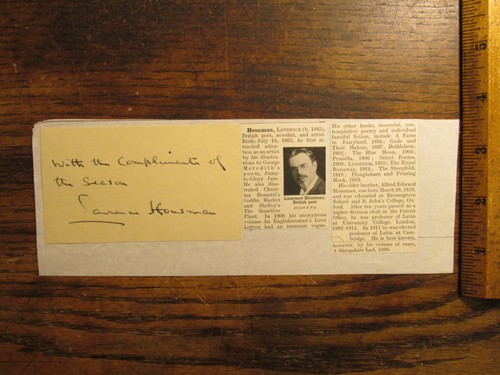 With the Compliments of
the Season
Laurence Housman
Housman, LAURENCE (b. 1865)
British poet, novelist, and artist.
Born July 18, 1865, he first at-
tracted atten-
tion as an artist
by his illustra-
tions to George
Meredith's
poem, Jump-
to-Glory Jane.
He also illus-
trated Christ-
ina Rossetti's
Goblin Market
and Shelley's
The Sensitive
Plant. In 1900 his anonymous
volume An Englishwoman's Love
Letters had an immense vogue.
Laurence Housman,
British poet
His other books, beautiful, con-
templative poetry and individual
fanciful fiction, include A Farm
in Fairyland, 1894; Gods and
Their Makers, 1897; Bethlehem,
1902; The Blue Moon, 1904;
Prunella, 1906; Select Poems,
1909; Lysistrata, 1910; The Royal
Runaway, 1914; The Sheepfold,
1918; Ploughshare and Pruning
Hook, 1919.
His elder brother, Alfred Edward
Housman, was born March 26, 1859,
and was educated at Bromsgrove
School and S. John's College, Ox-
ford. After ten years passed as a
higher division clerk in the Patent
Office, he was professor of Latin
at University College, London,
1892-1911. In 1911 he was elected
professor of Latin at Cam-
bridge. He is best known,
however, by his volume of verse,
A Shropshire Lad, 1896.
5
4
3